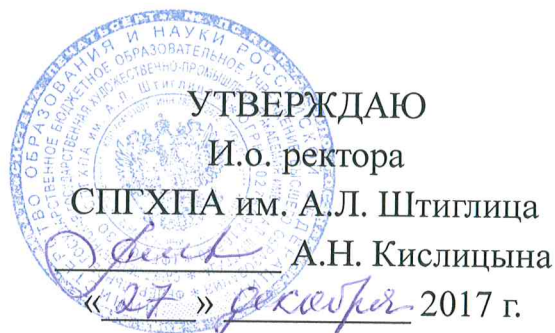 УТВЕРЖДАЮ
И.о. ректора
СПГХПА им. А.Л. Штиглица
А.Н. Кислицына
«27» декабря 2017 г.